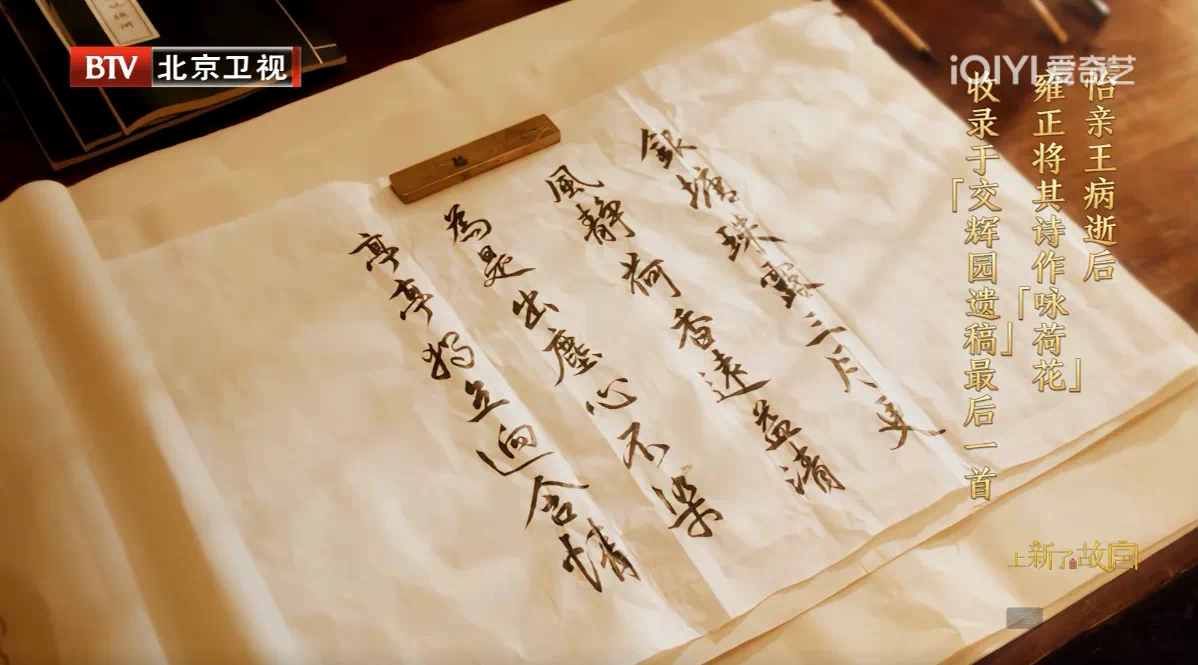 BTV 北京卫视
iQIYI 爱奇艺
怡亲王病逝后
雍正将其诗作「咏荷花」
收录于「交辉园遗稿」最后一首
銀塘珠露三月更
風静荷香遠益清
為是出塵心不染
亭亭獨立迥含情
上新了故宫